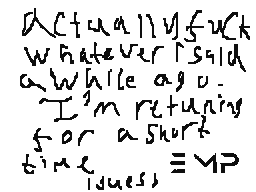 Actually fuck
whatever i said
awhile ago.
I'm returning
for a short
time EMP
iguess